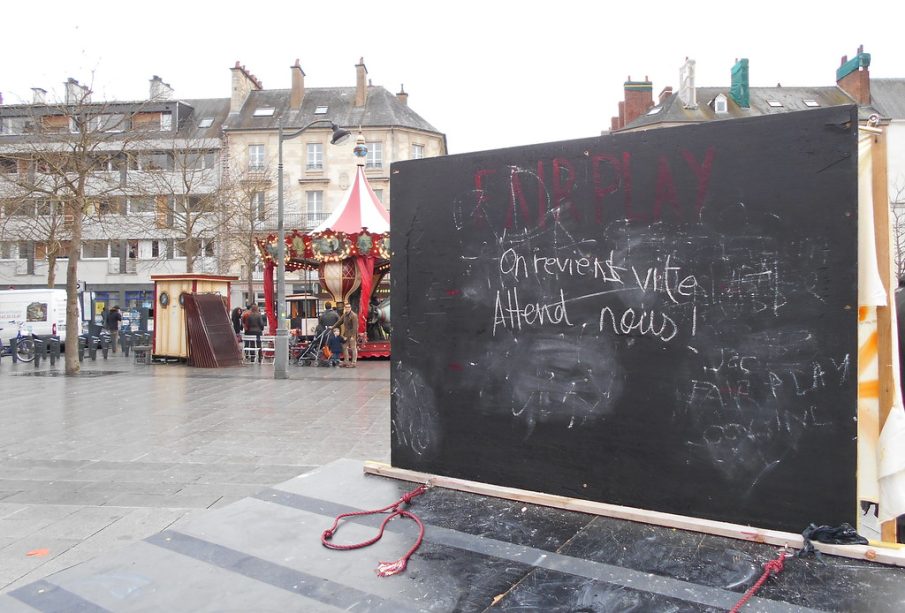 FAIRPLAY
On revient vite
Attend nous !
FAIR PLAY